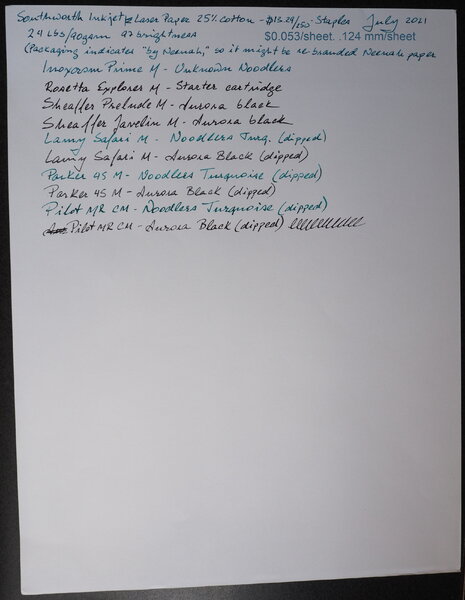 Southworth Inkjet & Laser Paper 25% cotton - $13.29/250 - Staples July 2021
24 lbs/90gsm 97 brightness $0.053/sheet. .124 mm/sheet
(Packaging indicates "by Neenah," so it might be re-branded Neenah paper
Inoxcrom Prime M - Unknown Noodlers
Rosetta Explorer M - Starter cartridge
Sheaffer Prelude M - Aurora black
Sheaffer Javelin M - Aurora black
Lamy Safari M - Noodlers Turq. (dipped)
Lamy Safari M - Aurora Black (dipped)
Parker 45 M - Noodlers Turquoise (dipped)
Parker 45 M - Aurora Black (dipped)
Pilot MR CM - Noodlers Turquoise (dipped)
Pilot MR CM - Aurora Black (dipped)